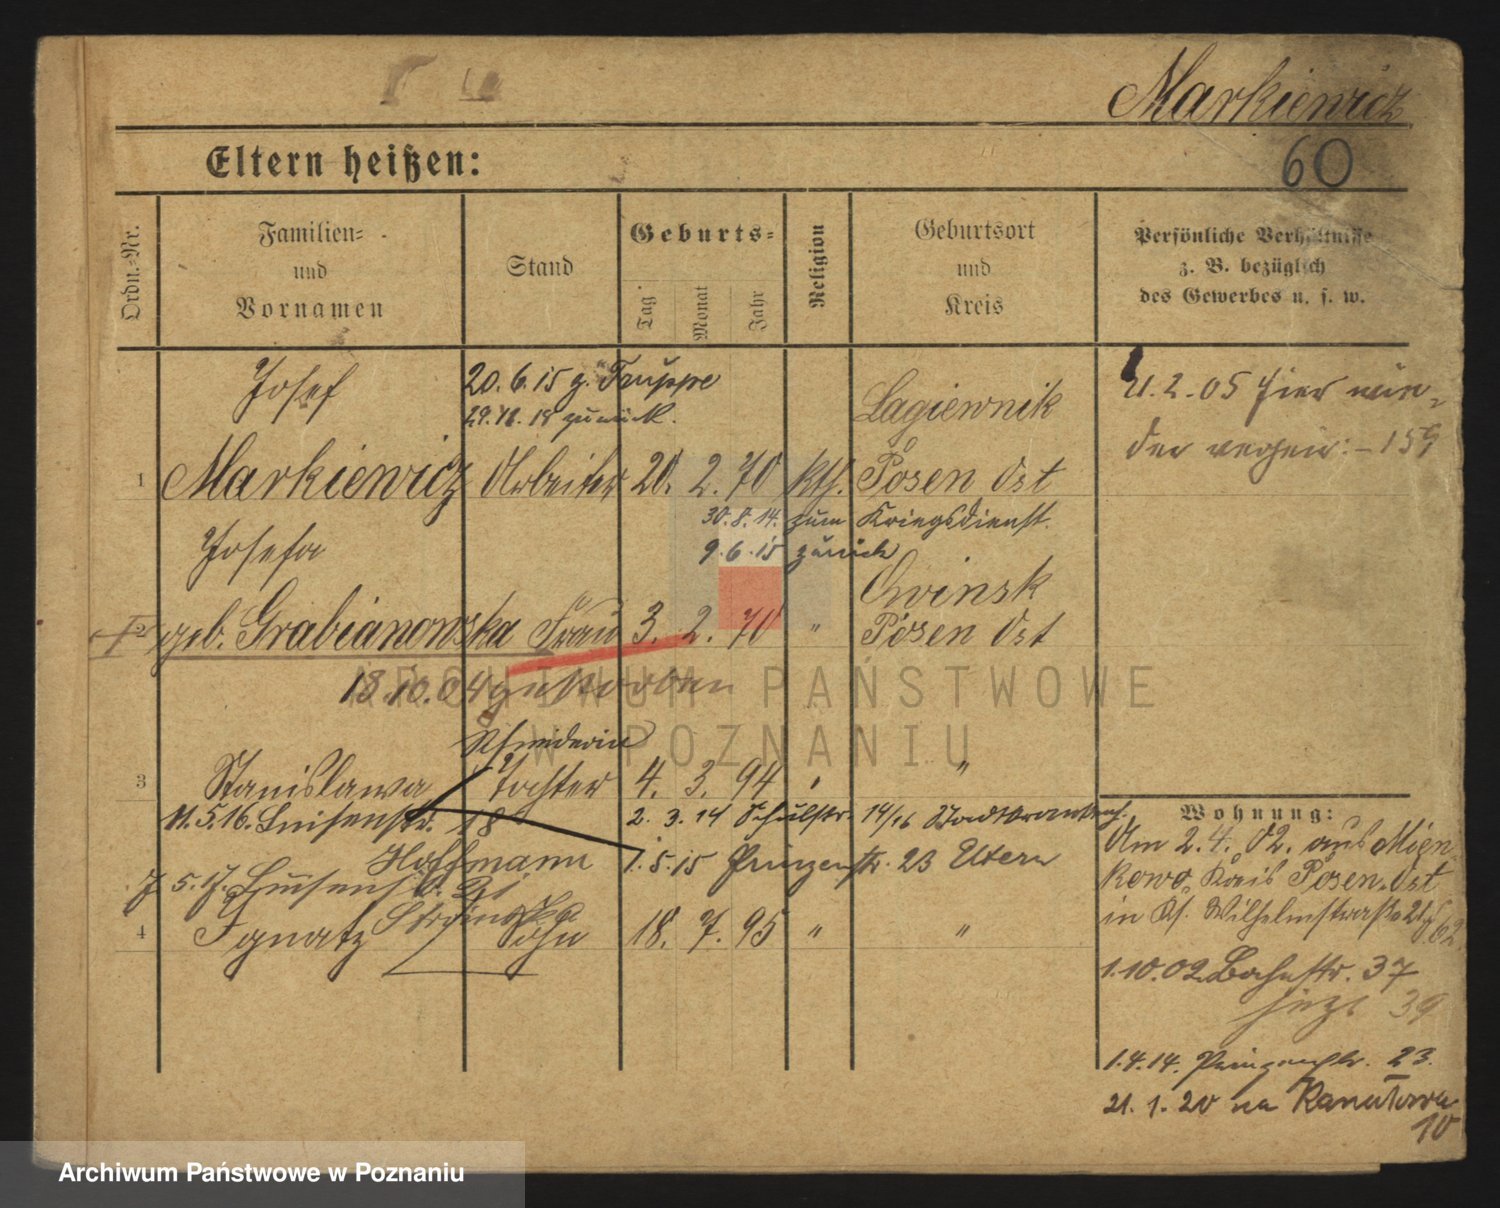 Markiewicz
60
Eltern heißen:
Ordn.-Nr.
Familien-
und
Vornamen
Stand
Geburts-
Tag
Monat
Jahr
Religion
Geburtsort
und
Kreis
Persönliche Verhältnisse
z. B. bezüglich
des Gewerbes u. s. w.
Josef
20.6.15 z. Truppe
zurück.
Lagiewnik
1 Markiewicz Arbeiter 20. 2. 70 kth. Posen Ost
30.8.14. zum Kriegsdienst.
9.6.15 zurück
Josefa
Owinsk
2 geb. Grabianowska Frau 3. 2. 70 " Posen Ost
18.10.04 gestorben
Schneiderin
3 Stanislawa Tochter 4. 3. 94 "
11.5.16. Luisenstr. 18
2. 3. 14 Schulstr. 14/16 Stadtkrankenh.
Hoffmann
1.5.15 Prinzenstr. 23 Eltern
7.5.17. Luisenstr.
4 Ignatz Sohn 18. 7. 95 " "
21.2.05 hier
159
Wohnung:
Am 2.4.02. aus Mien
kowo, Kreis Posen-Ost
in Kf. Wilhelmstraße
1.10.02 Bahnstr. 37
jezt 39
1.4.14. Prinzenstr. 23.
21.1.20 na Kanałowa
10
ARCHIWUM PAŃSTWOWE
W POZNANIU
Archiwum Państwowe w Poznaniu